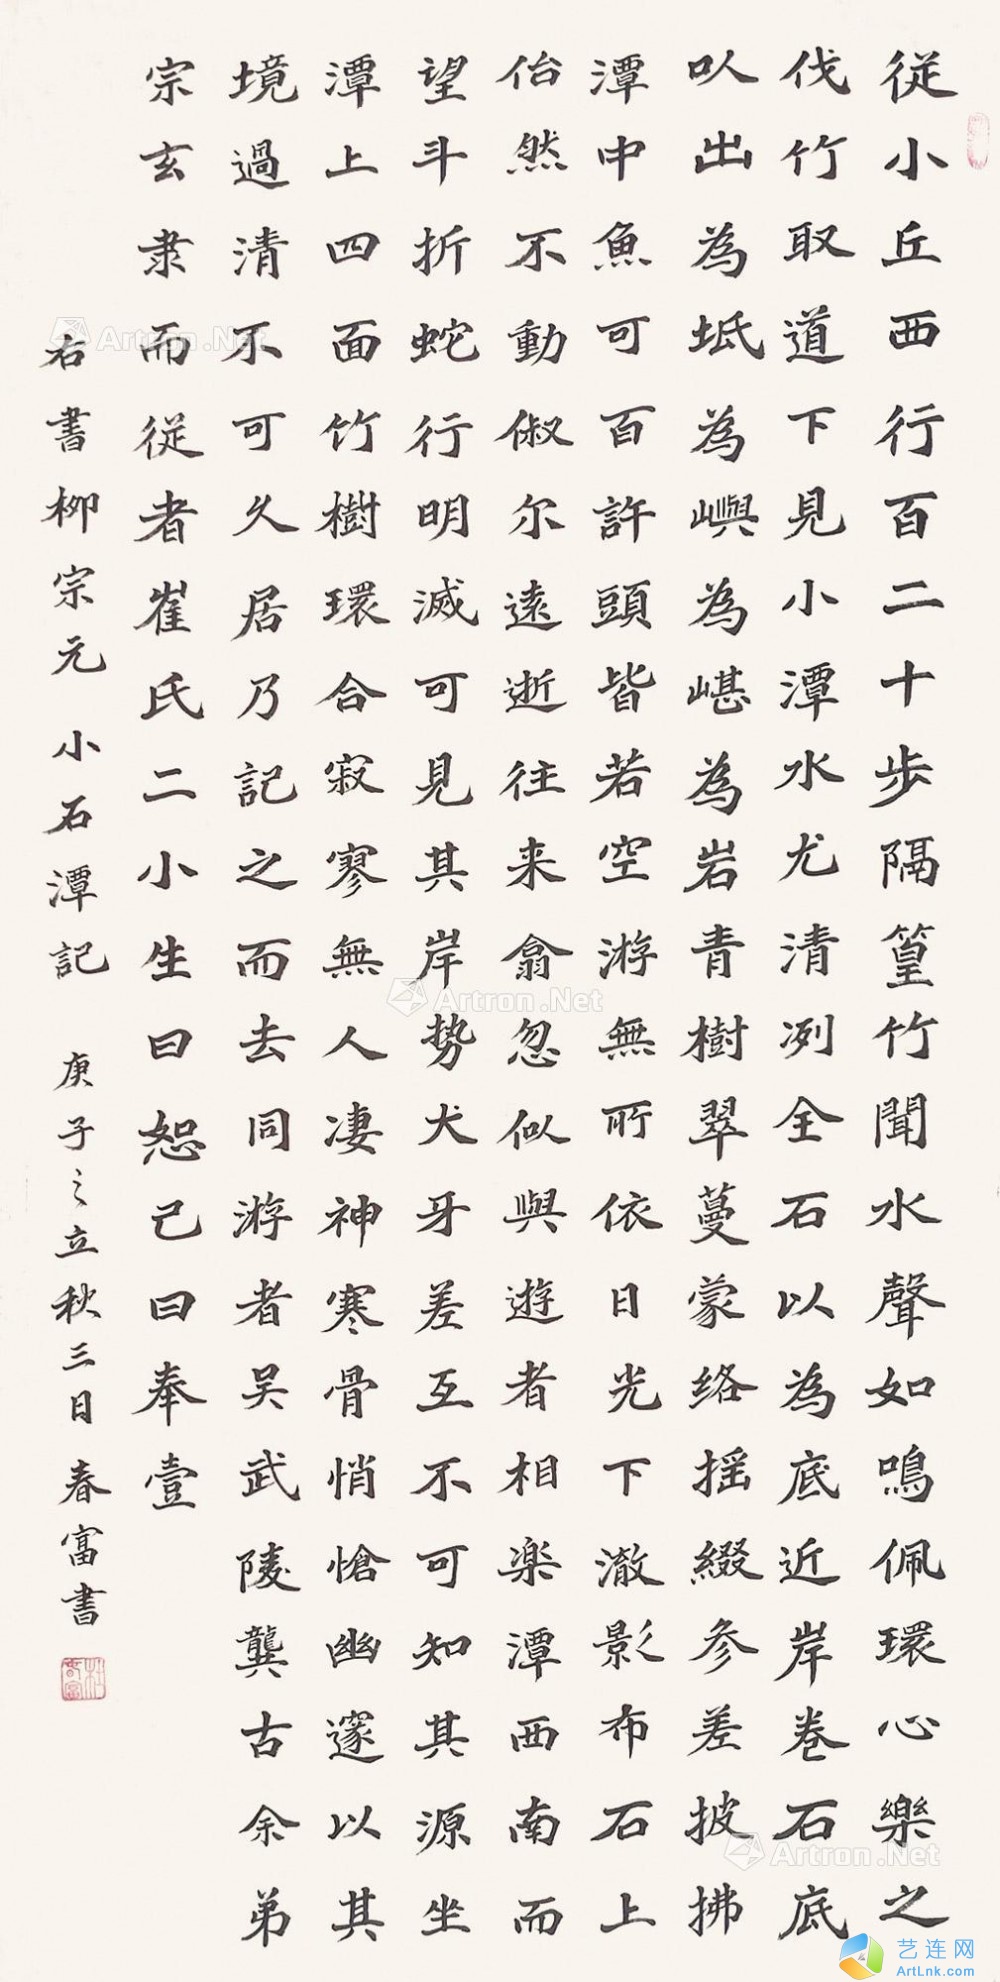 從小丘西行百二十步隔篁竹聞水聲如鳴佩環心樂之
伐竹取道下見小潭水尤清冽全石以為底近岸卷石底
㕥出為坻為嶼為嵁為岩青樹翠蔓蒙络摇綴参差披拂
潭中魚可百許頭皆若空游無所依日光下澈影布石上
佁然不動俶尔遠逝往来翕忽似與遊者相楽潭西南而
望斗折蛇行明滅可見其岸势犬牙差互不可知其源坐
潭上四面竹樹環合寂寥無人凄神寒骨悄愴幽邃以其
境過清不可久居乃記之而去同游者吴武陵龔古余弟
宗玄隶而從者崔氏二小生曰恕己曰奉壹
右書柳宗元 小石潭記 庚子之立秋三日 春富書
Artron.Net
Artron.Net
Artron.Net
艺连网
ArtLnk.com